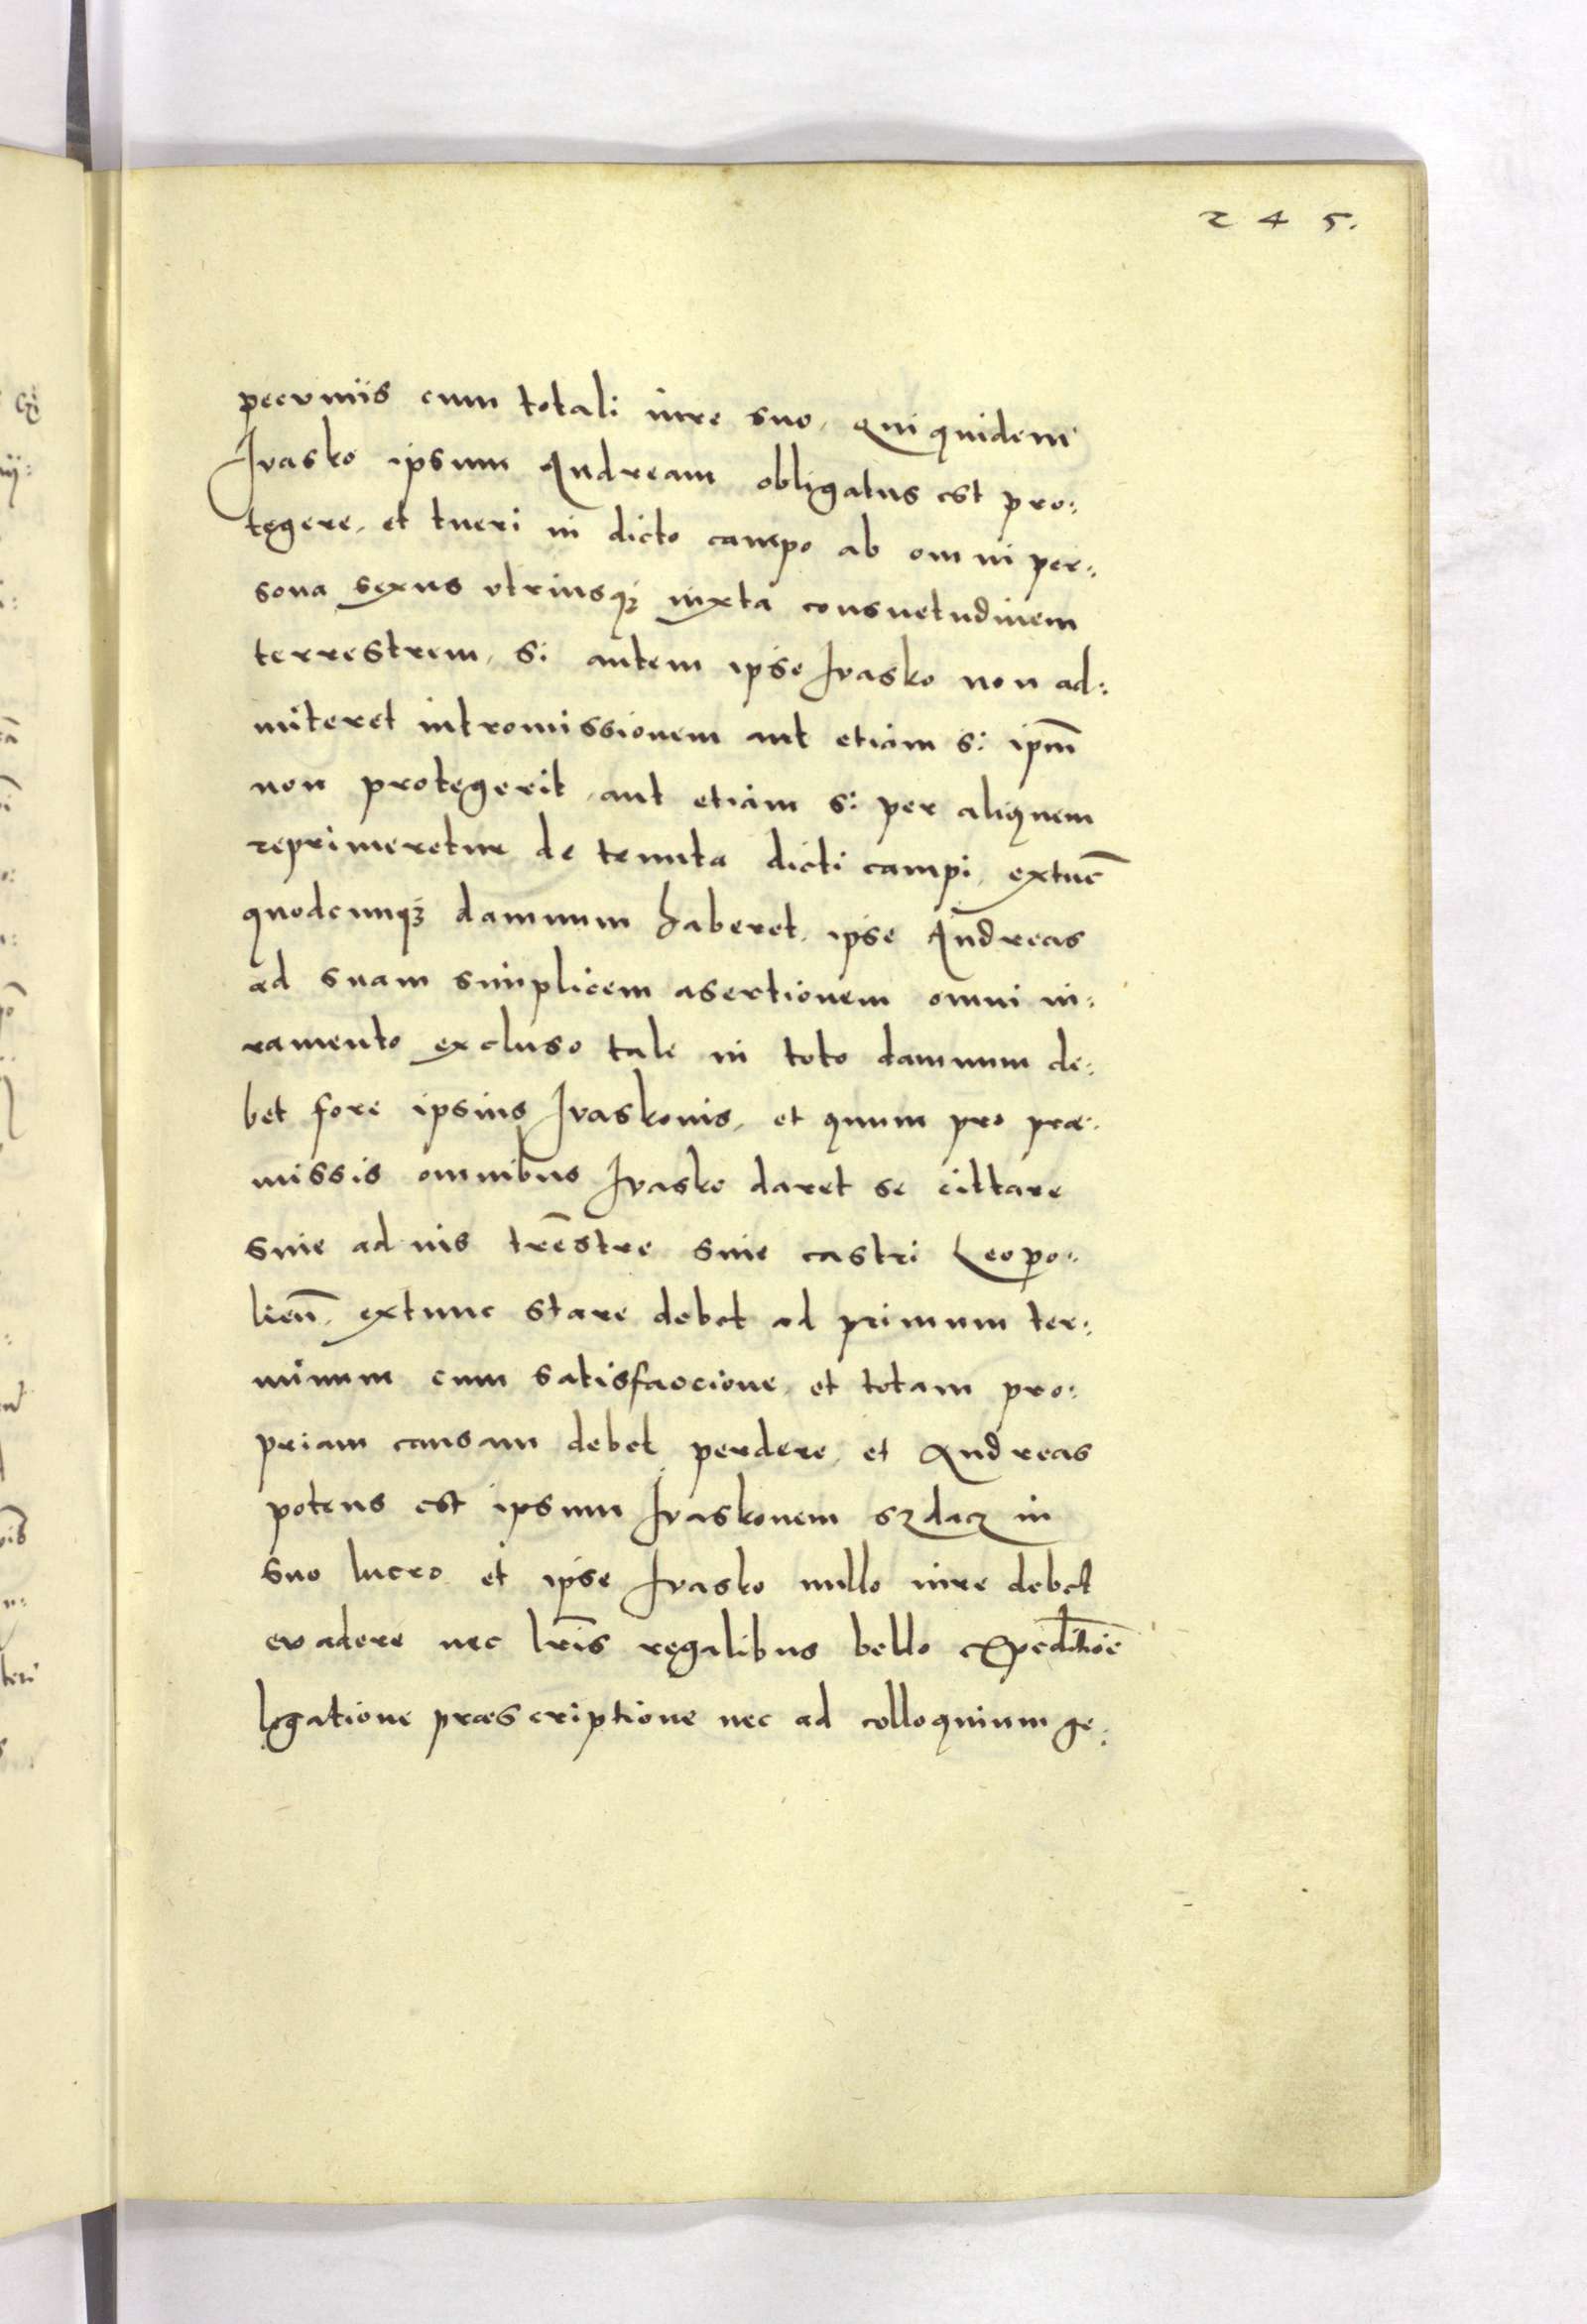 245.
pecuniis cum totali iure suo, qui quidem
Ivasko ipsum Andream obligatus est pro:
tegere, et tueri in dicto campo ab omni per:
sona sexus utriusq3 iuxta consuetudinem
terrestrem, si autem ipse Ivasko non ad:
miteret intromissionem aut etiam si ipm̄
non protegerit, aut etiam si per aliquem
reprimeretur de tenuta dicti campi, extūc
quodcunq3 damnum haberet, ipse Andreas
ad suam simplicem asertionem omni iu:
ramento excluso tale in toto damnum de:
bet fore ipsius Ivaskonis, et quum pro præ:
missis omnibus Ivasko daret se cittare
sine ad ius trēstre sine castri Leopo:
lien̄, extunc stare debet ad primum ter:
minum cum satisfaccione, et totam pro:
priam causam debet perdere, et Andreas
potens est ipsum Ivaskonem in
suo lucro et ipse Ivasko nullo iure debet
evadere nec lr̄is regalibus bello expeditiōe
legatione præscriptione nec ad colloquium ge: